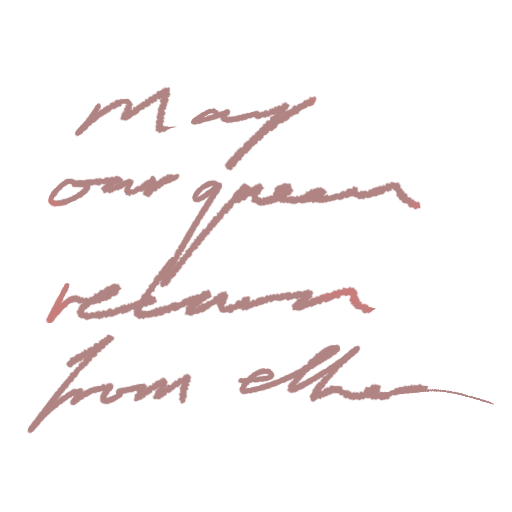 May
our queen
return
from ether